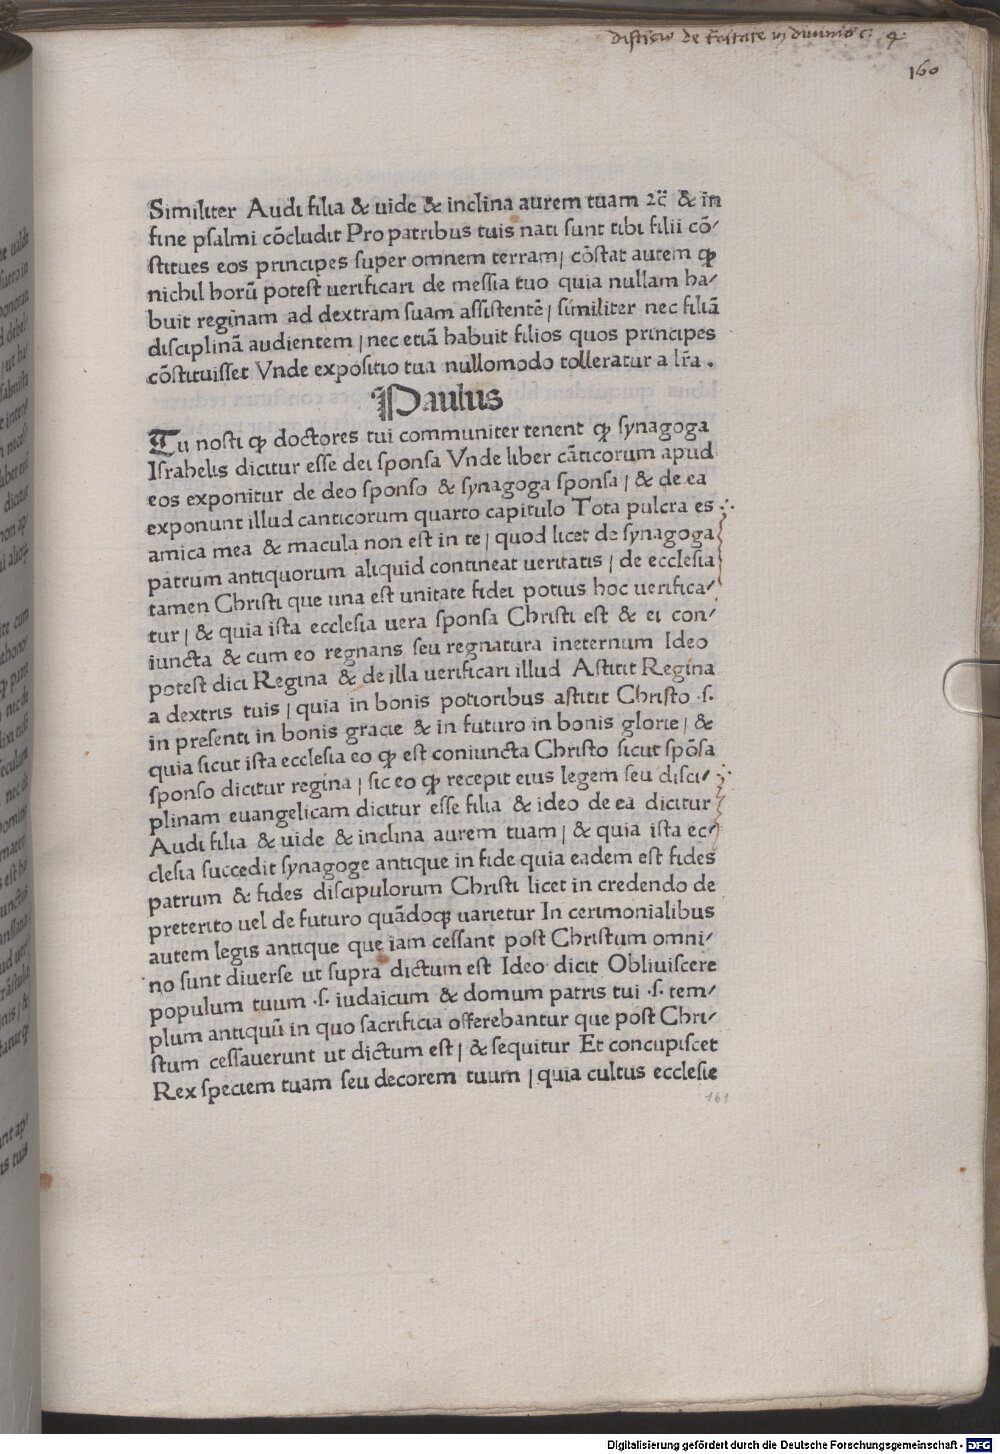 distīctio de t̄nitate in diuinis c. 4
160
Similiter Audi filia & uide & inclina aurem tuam ⁊c̄ & in
fine psalmi cōcludit Pro patribus tuis nati sunt tibi filii cō⸗
stitues eos principes super omnem terram / cōstat autem ꝙ
nichil horū potest uerificari de messia tuo quia nullam ha⸗
buit reginam ad dextram suam assistentē / similiter nec filiā
disciplinā audientem / nec etiā habuit filios quos principes
cōstituisset Vnde expositio tua nullomodo tolleratur a lr̄a .
Paulus
Tu nosti ꝙ doctores tui communiter tenent ꝙ synagoga
Israhelis dicitur esse dei sponsa Vnde liber cāticorum apud
eos exponitur de deo sponso & synagoga sponsa / & de ea
exponunt illud canticorum quarto capitulo Tota pulcra es
amica mea & macula non est in te / quod licet de synagoga
patrum antiquorum aliquid contineat ueritatis / de ecclesia
tamen Christi que una est unitate fidei potius hoc uerifica⸗
tur / & quia ista ecclesia uera sponsa Christi est & ei con⸗
iuncta & cum eo regnans seu regnatura ineternum Ideo
potest dici Regina & de illa uerificari illud Astitit Regina
a dextris tuis / quia in bonis potioribus astitit Christo ·ſ.
in presenti in bonis gracie & in futuro in bonis glorie / &
quia sicut ista ecclesia eo ꝙ est coniuncta Christo sicut spōsa
sponso dicitur regina / sic eo ꝙ recepit eius legem seu disci⸗
plinam euangelicam dicitur esse filia & ideo de ea dicitur
Audi filia & uide & inclina aurem tuam / & quia ista ec⸗
clesia succedit synagoge antique in fide quia eadem est fides
patrum & fides discipulorum Christi licet in credendo de
preterito uel de futuro quādoqꝫ uarietur In cerimonialibus
autem legis antique que iam cessant post Christum omni⸗
no sunt diuerse ut supra dictum est Ideo dicit Obliuiscere
populum tuum ·ſ. iudaicum & domum patris tui ·ſ. tem⸗
plum antiquū in quo sacrificia offerebantur que post Chri⸗
stum cessauerunt ut dictum est / & sequitur Et concupiscet
Rex speciem tuam seu decorem tuum / quia cultus ecclesie
161
Digitalisierung gefördert durch die Deutsche Forschungsgemeinschaft - DFG